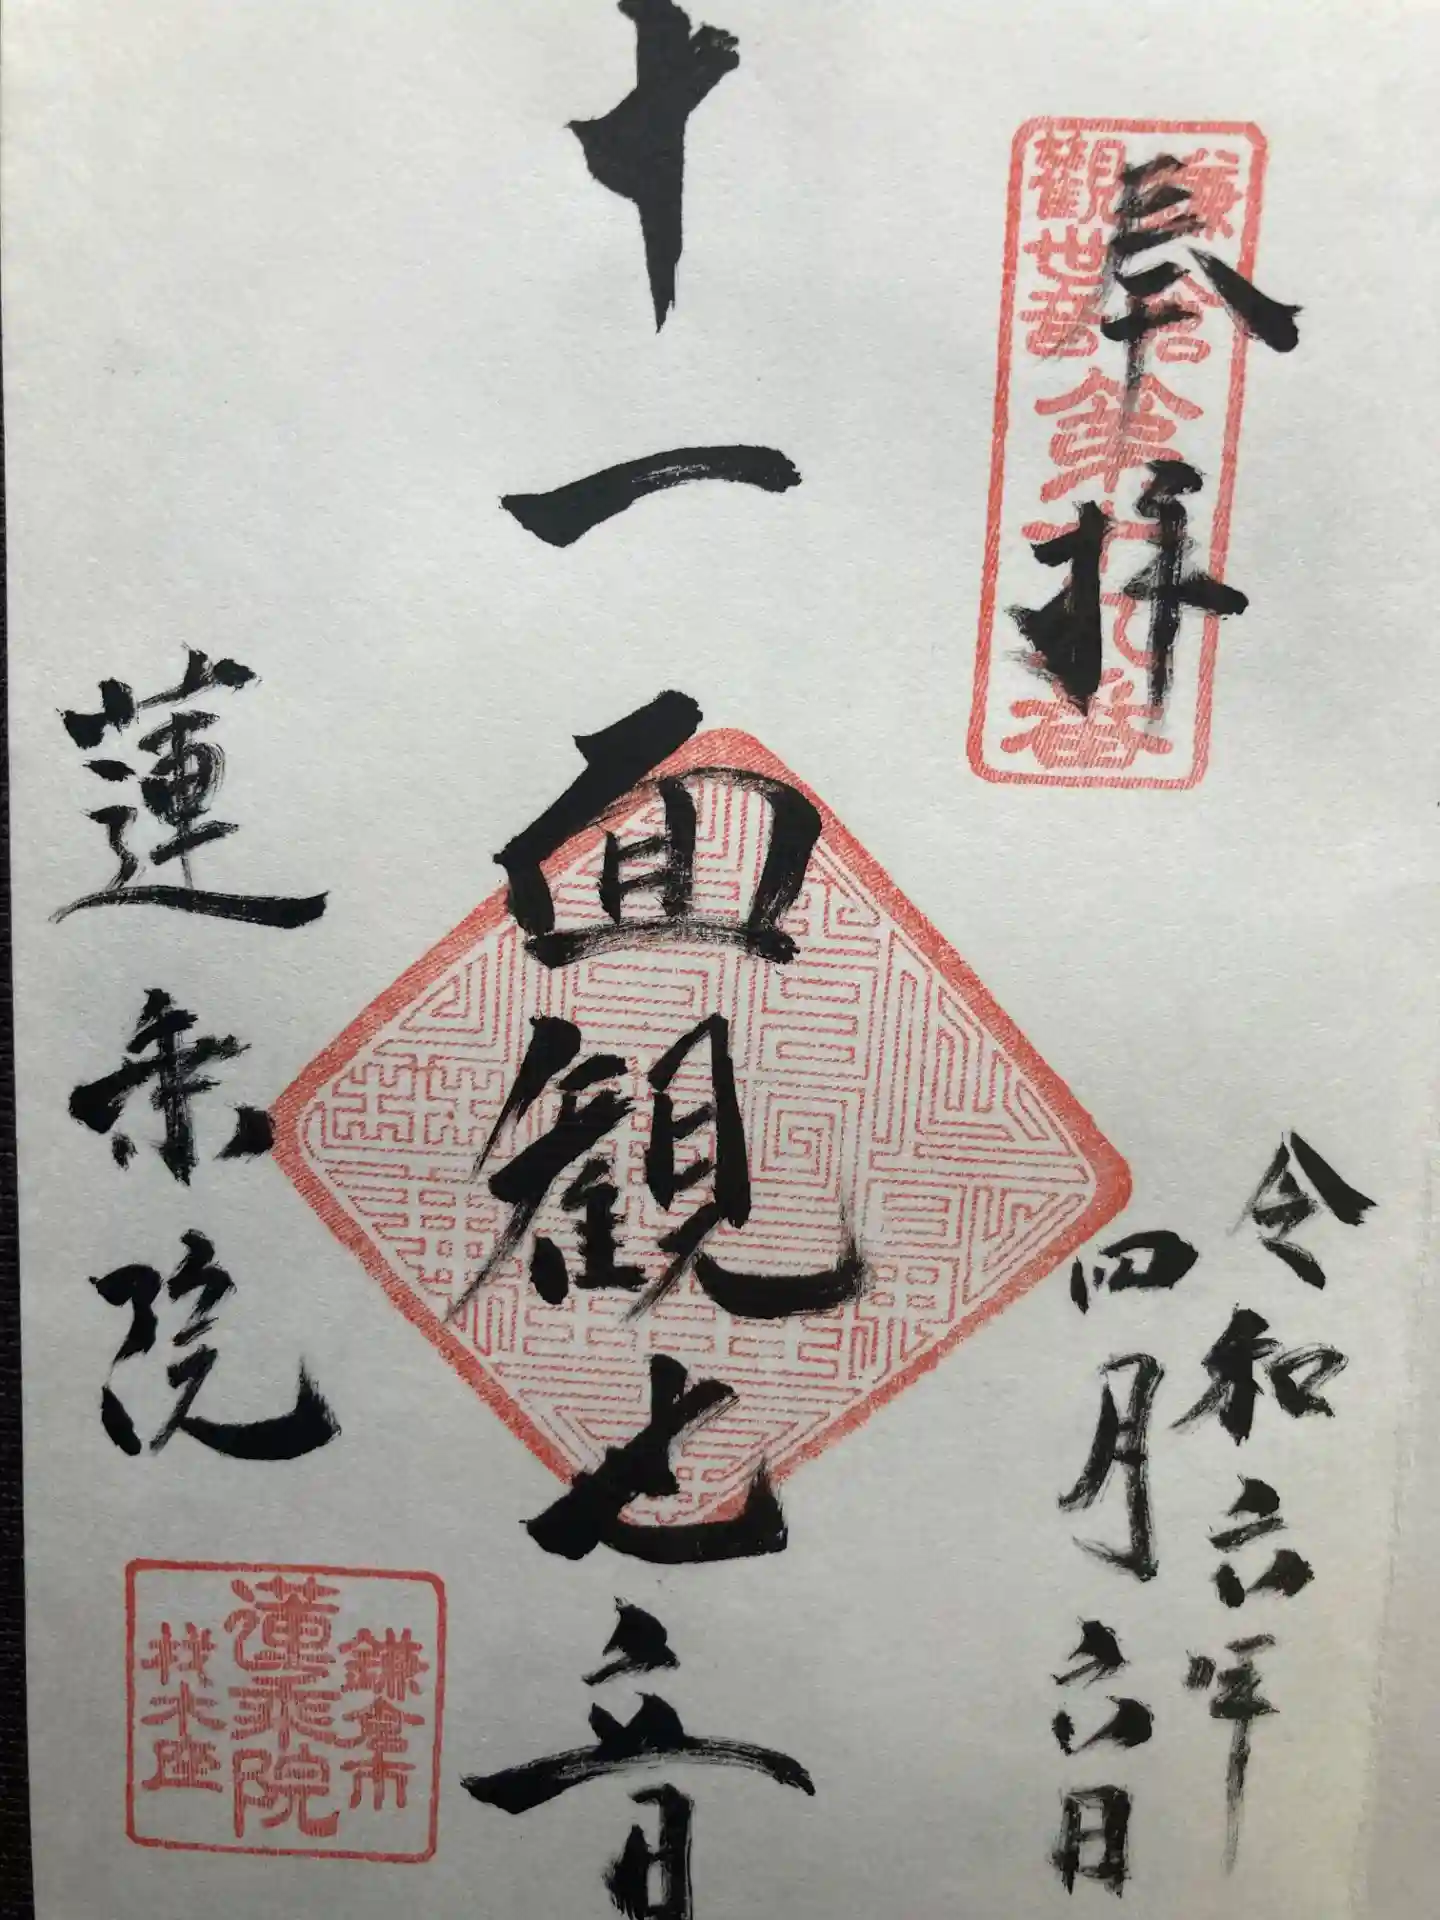 奉拝
鎌倉
観世音
第十九番
令和六年
四月六日
十一面観世音
蓮乗院
鎌倉市
蓮乗院
材木座